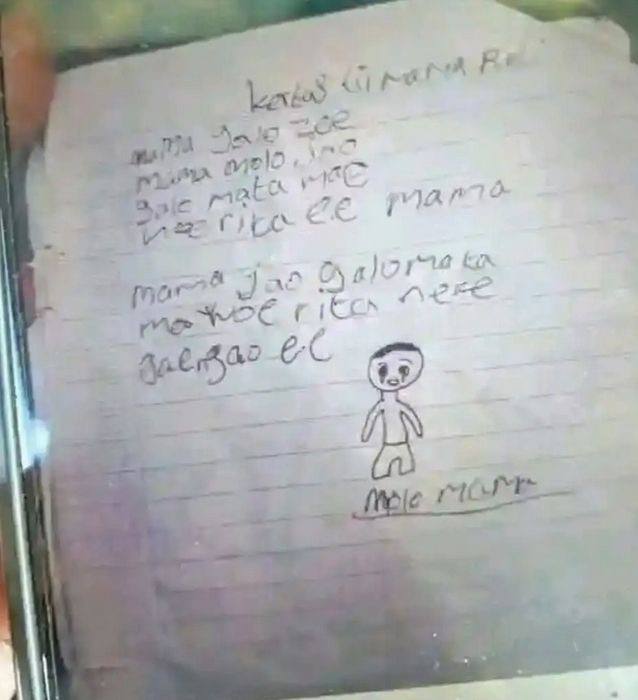 kertas tii mama Re
mama galo zoe
mama molo ja'o
galo mata mae
rita ee mama
mama jao galo mata
mae woe rita nere
gaengao ee
molo mama